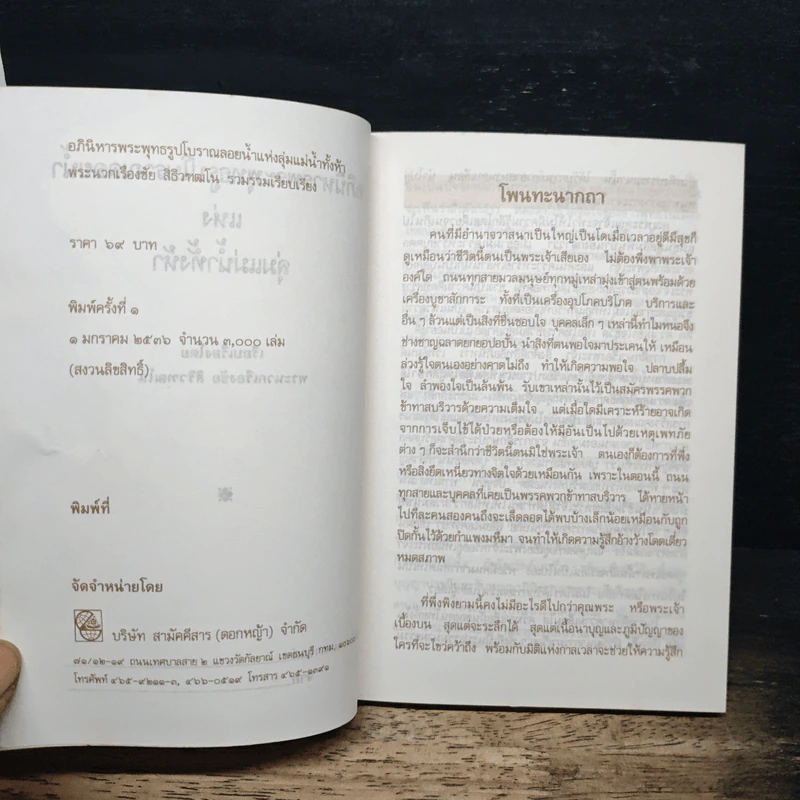 อภินิหารพระพุทธรูปโบราณลอยน้ำแห่งลุ่มแม่น้ำทั้งห้า
พระนวกเรืองชัย สิริวฑฒโน รวมรวมเรียบเรียง
ราคา ๖๙ บาท
พิมพ์ครั้งที่ ๑
๑ มกราคม ๒๕๓๖ จำนวน ๓,๐๐๐ เล่ม
(สงวนลิขสิทธิ์)
พิมพ์ที่
จัดจำหน่ายโดย
บริษัท สามัคคีสาร (ดอกหญ้า) จำกัด
๗๑/๑๒-๑๙ ถนนเทศบาลสาย ๒ แขวงวัดกัลยาณ์ เขตธนบุรี กทม. ๑๐๖๐๐
โทรศัพท์ ๔๖๕-๙๒๑๑-๓, ๔๖๖-๐๕๑๙ โทรสาร ๔๖๕-๑๓๙๑
โพนทะนากถา
คนที่มีอำนาจวาสนาเป็นใหญ่เป็นโตเมื่อเวลาอยู่ดีมีสุขก็
ดูเหมือนว่าชีวิตนี้ตนเป็นพระเจ้าเสียเอง ไม่ต้องพึ่งพาพระเจ้า
องค์ใด ถนนทุกสายมวลมนุษย์ทุกหมู่เหล่ามุ่งเข้าสู่ตนพร้อมด้วย
เครื่องบูชาสักการะ ทั้งที่เป็นเครื่องอุปโภคบริโภค บริการและ
อื่น ๆ ล้วนแต่เป็นสิ่งที่ชื่นชอบใจ บุคคลเล็ก ๆ เหล่านี้ทำไมหนอจึง
ช่างชาญฉลาดยกยอปอปั้น นำสิ่งที่ตนพอใจมาประเคนให้ เหมือน
ล่วงรู้ใจตนเองอย่างคาดไม่ถึง ทำให้เกิดความพอใจ ปลาบปลื้ม
ใจ ลำพองใจเป็นล้นพ้น รับเขาเหล่านั้นไว้เป็นสมัครพรรคพวก
ข้าทาสบริวารด้วยความเต็มใจ แต่เมื่อใดมีเคราะห์ร้ายอาจเกิด
จากการเจ็บไข้ได้ป่วยหรือต้องให้มีอันเป็นไปด้วยเหตุเพทภัย
ต่าง ๆ ก็จะสำนึกว่าชีวิตนี้ตนมิใช่พระเจ้า ตนเองก็ต้องการที่พึ่ง
หรือสิ่งยึดเหนี่ยวทางจิตใจด้วยเหมือนกัน เพราะในตอนนี้ ถนน
ทุกสายและบุคคลที่เคยเป็นพรรคพวกข้าทาสบริวาร ได้หายหน้า
ไปทีละคนสองคนถึงจะเล็ดลอดได้พบบ้างเล็กน้อยเหมือนกับถูก
ปิดกั้นไว้ด้วยกำแพงมหึมา จนทำให้เกิดความรู้สึกอ้างว้างโดดเดี่ยว
หมดสภาพ
ที่พึ่งพิงยามนี้คงไม่มีอะไรดีไปกว่าคุณพระ หรือพระเจ้า
เบื้องบน สุดแต่จะระลึกได้ สุดแต่เนื้อนาบุญและภูมิปัญญาของ
ใครที่จะไขว่คว้าถึง พร้อมกับมิติแห่งกาลเวลาจะช่วยให้ความรู้สึก